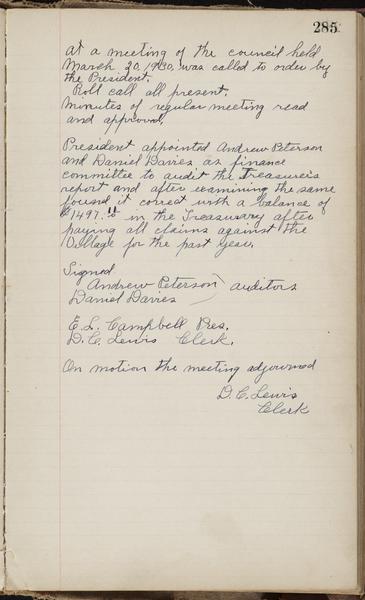 285
At a meeting of the council held
March 20, 1930, was called to order by
the President.
Roll call all present.
Minutes of regular meeting read
and approved.
President appointed Andrew Peterson
and Daniel Davies as finance
committee to audit the Treasurers
report and after examining the same
found it correct with a balance of
$1497. in the Treasurary after
paying all claims against the
Village for the past year.
Signed
Andrew Peterson ) auditors
Daniel Davies
E. L. Campbell Pres.
D. C. Lewis Clerk.
On motion the meeting adjourned
D. C. Lewis
Clerk